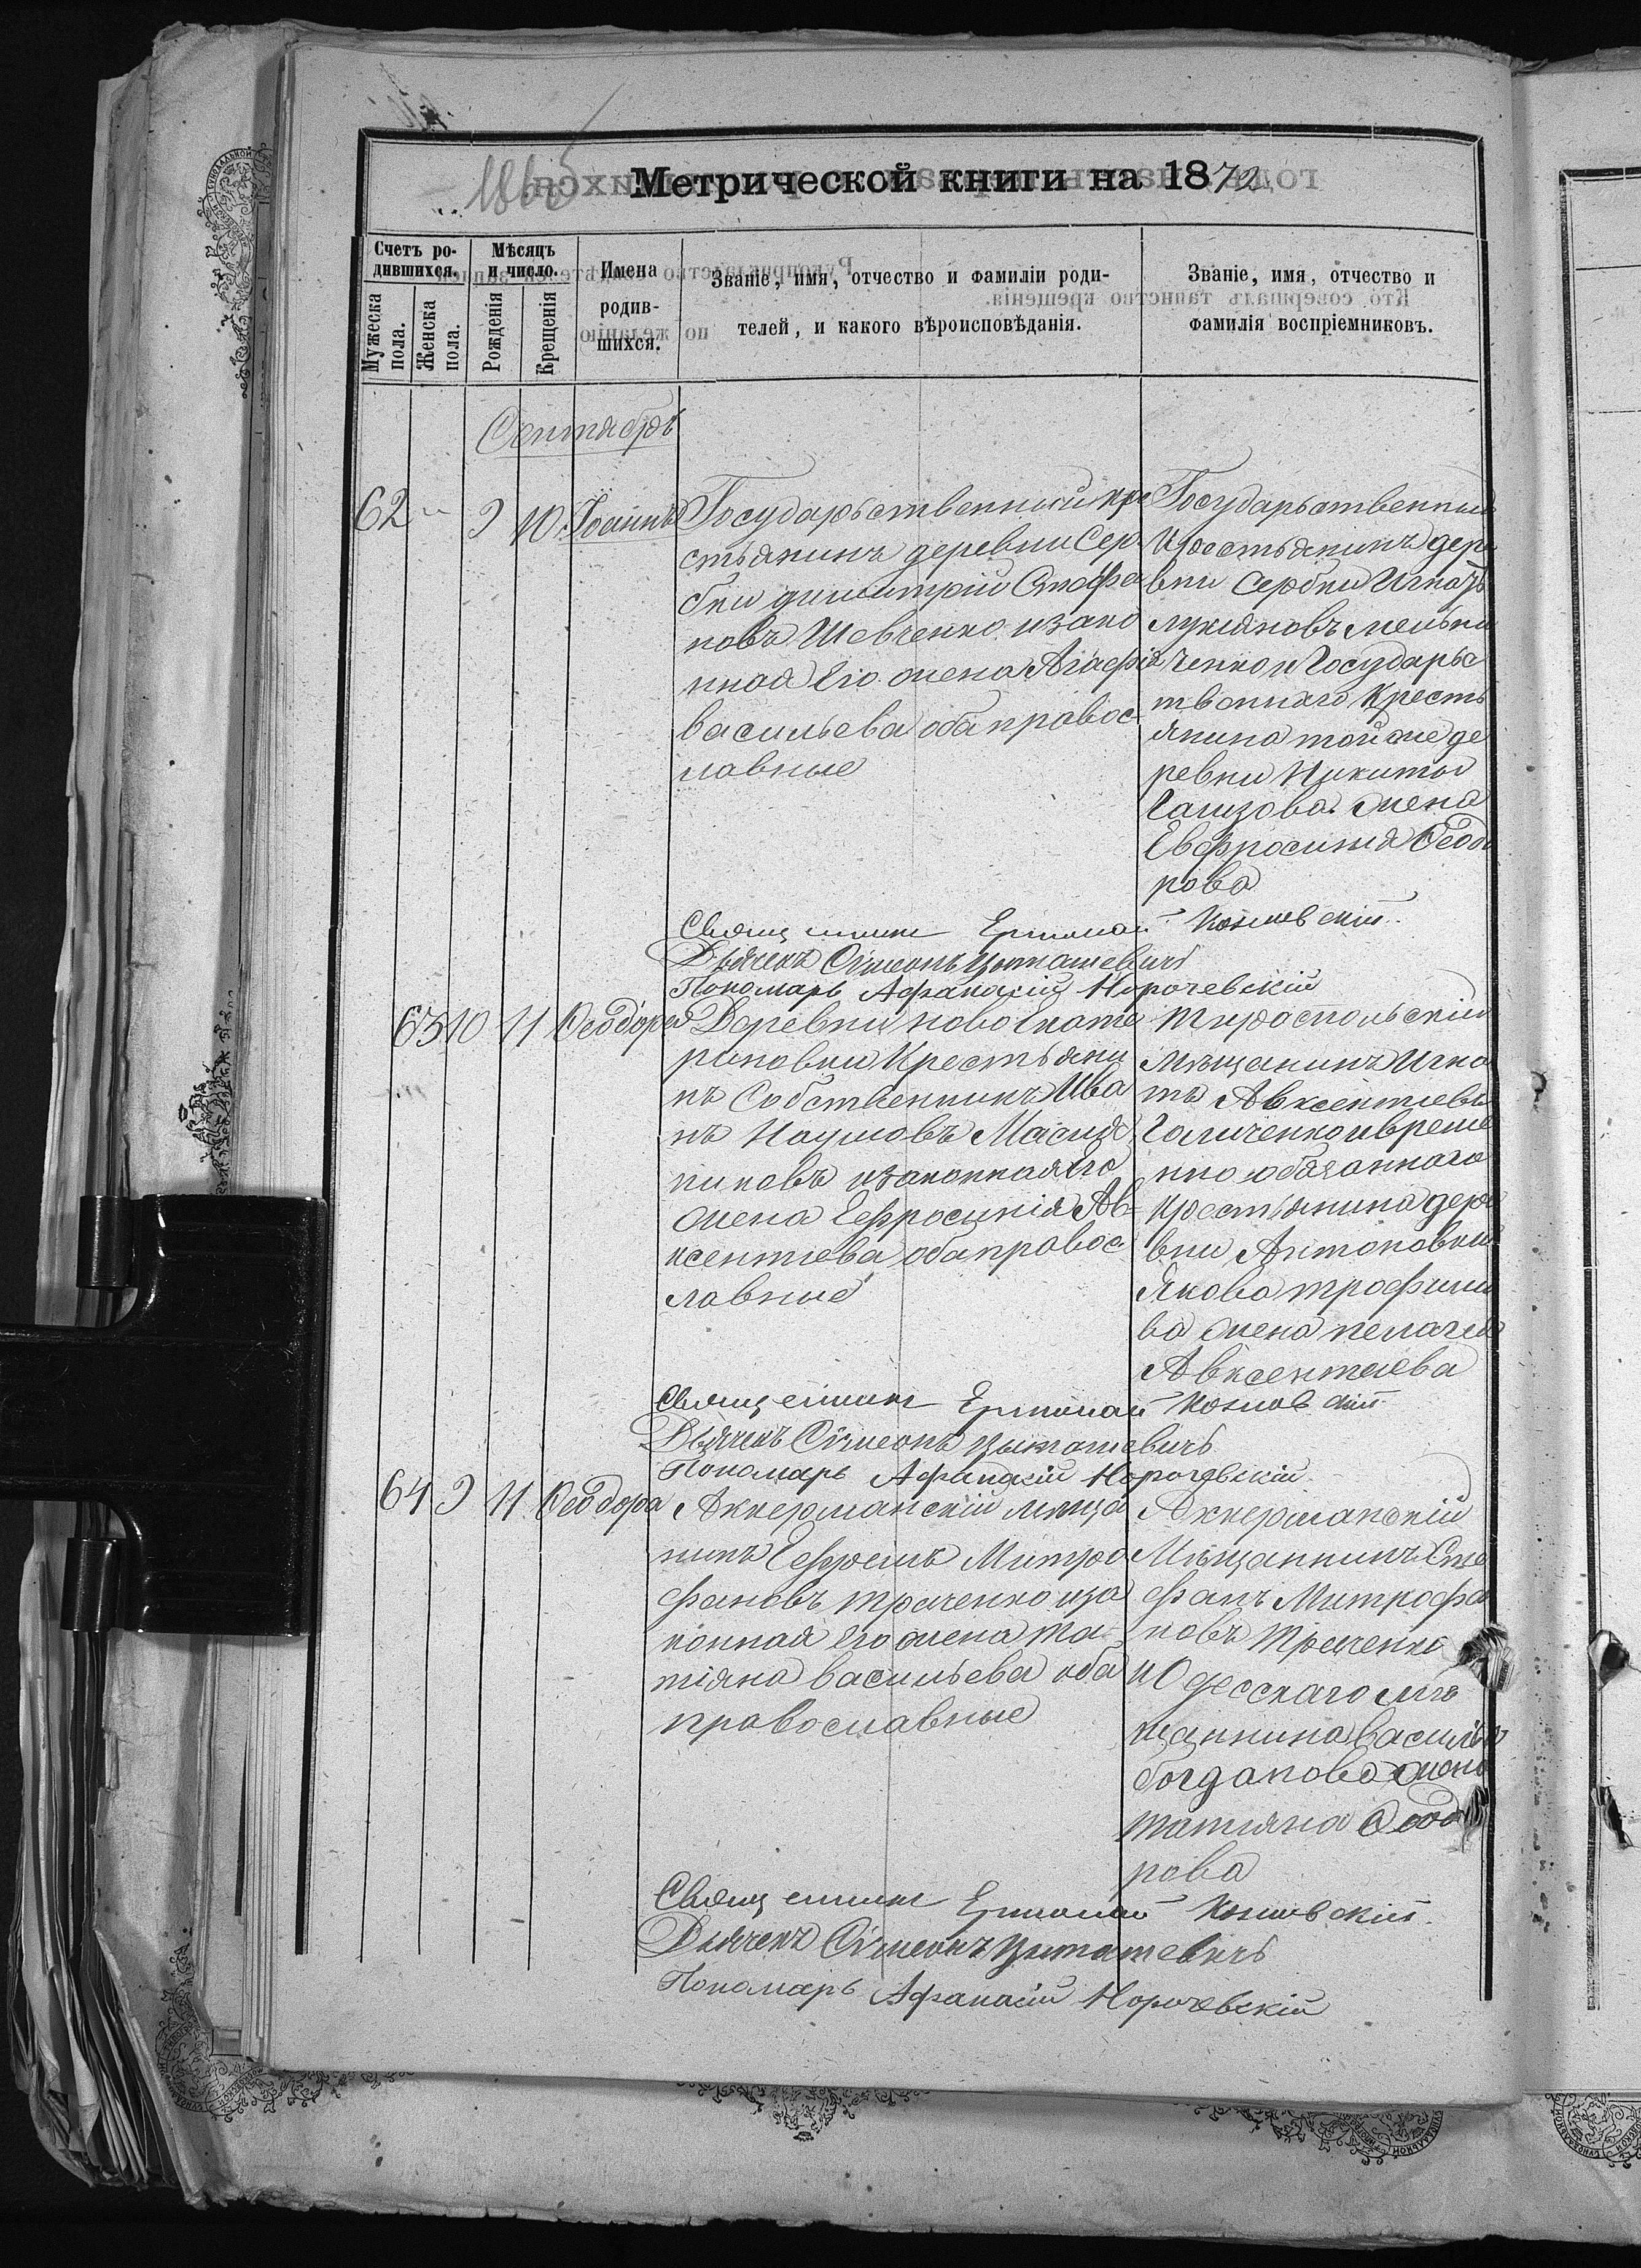 Метрической книги на 1872
Счетъ ро-
дившихся.
Мужеска
пола.
Женска
пола.
Мѣсяцъ
и число.
Рожденія
Крещенія
Имена
родив-
шихся.
Званіе, имя, отчество и фамиліи роди-
телей, и какого вѣроисповѣданія.
Званіе, имя, отчество и
фамилія воспріемниковъ.
Сентябрь
62 " 9 10 Іоаннъ
Государьственный кре
стьянинъ деревни Сер
бки димитрій Стефа
новъ Шевченко изако
нная Его жена Агафія
васильева оба правос
лавные
Государьственный
Крестьянинъ дере
вни Сербки Игнатъ
лукіяновъ мельни
ченко и Государьс
твеннаго Кресть
янина тойже де
ревни Никиты
жена
Евфросинія Феодо
рова
Священникъ Ермолай
Дьячекъ Сѵмеонъ
Пономарь Афанасій
63 10 11 Феодора
Деревни ново Екате
риновки Крестьяни
нъ Собственникъ Ива
нъ Наумовъ
изаконная Его
жена Ефросинія Ав-
ксентіева оба правос
лавные
Тираспольскій
Мѣщанинъ Игна
тъ Авксентіевъ
Галиченко и време
нно обязаннаго
Крестьянина дере
вни Антоновки
Якова трофимо
ва жена пелагея
Авксентиева
Священникъ Ермолай
Дьячекъ Сѵмеонъ
Пономарь Афанасій
64 9 11 Феодора
Аккерманскій мѣща
нинъ Ефремъ Митро
фановъ изa
конная его жена та-
тіяна васильева оба
православные
Аккерманскій
Мѣщаннинъ Сте
фанъ Митрофа
новъ
и Одесскаго мѣ
щаннина василія
богданова жена
татияна Феодо
рова
Священникъ Ермолай
Дьячекъ Сѵмеонъ
Пономарь Афанасій